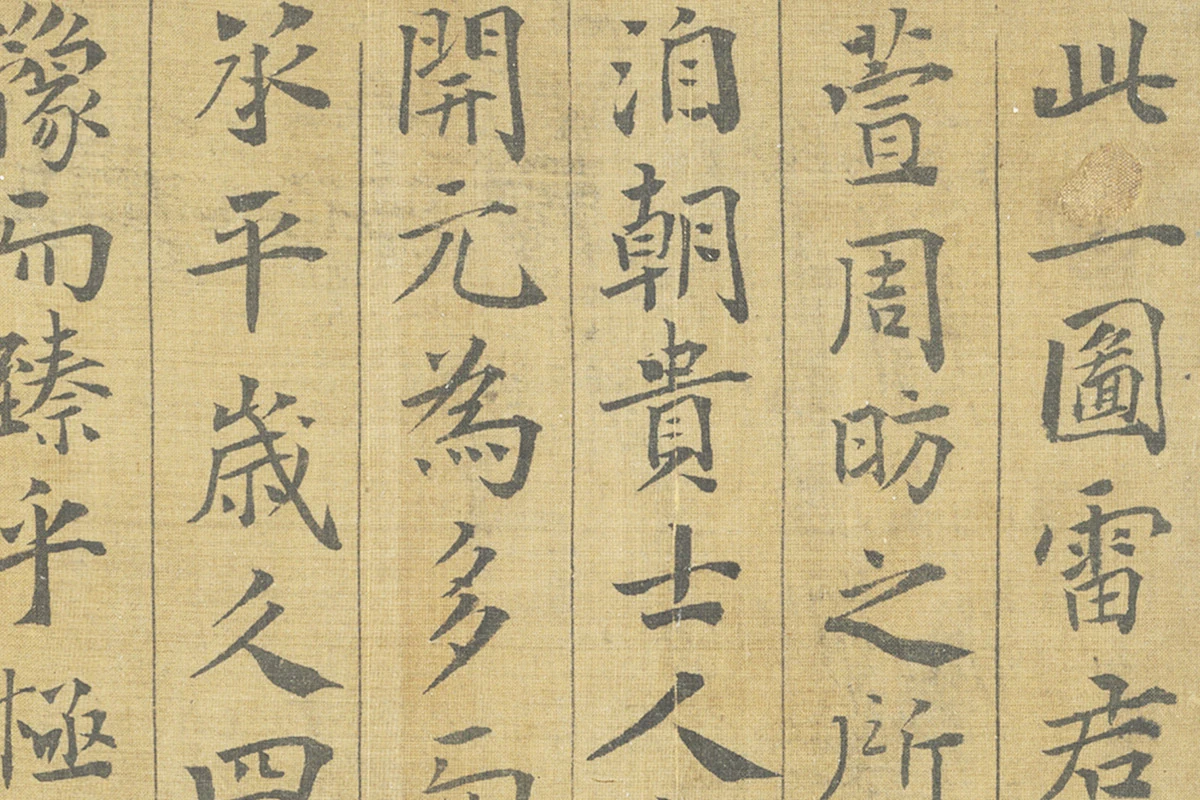 此一圖雷君
萱周昉之所
洵朝貴士人
開元為多而
承平歲久四
豫而臻乎極